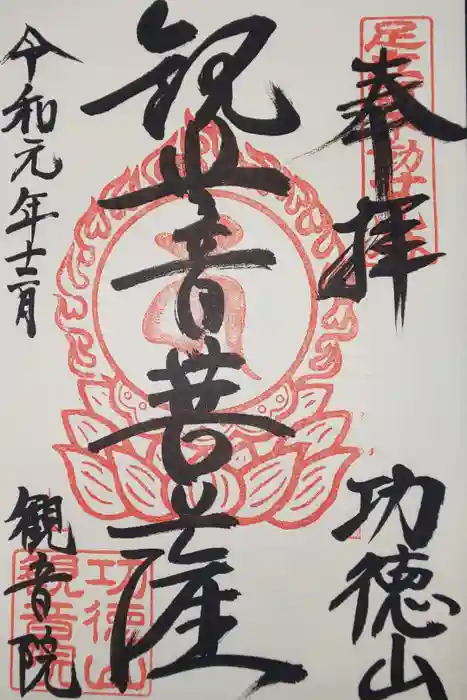 奉拝
功徳山
観世音菩薩
令和元年十二月
観音院
功徳山
観音院